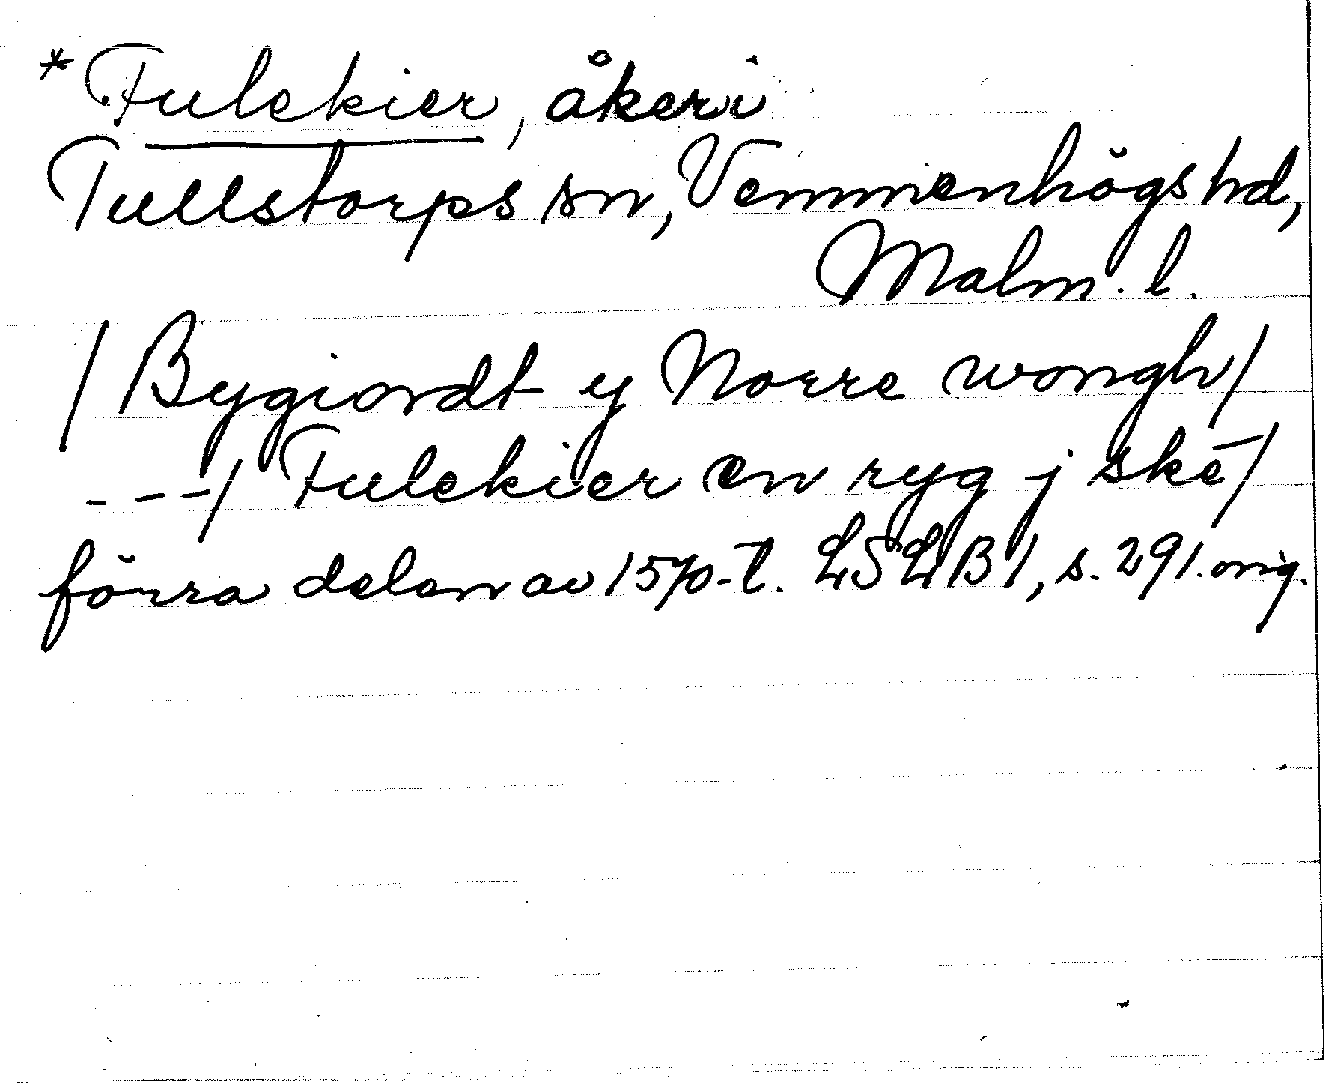 *Fulekier, åker i
Tullstorps sn, Vemmenhögs hd,
Malm. l.
/Bygiordt y Norre wongh/
---/ Fulekier en ryg j skē/
förra delen av 1570-t. LSLB 1, s. 291. orig.